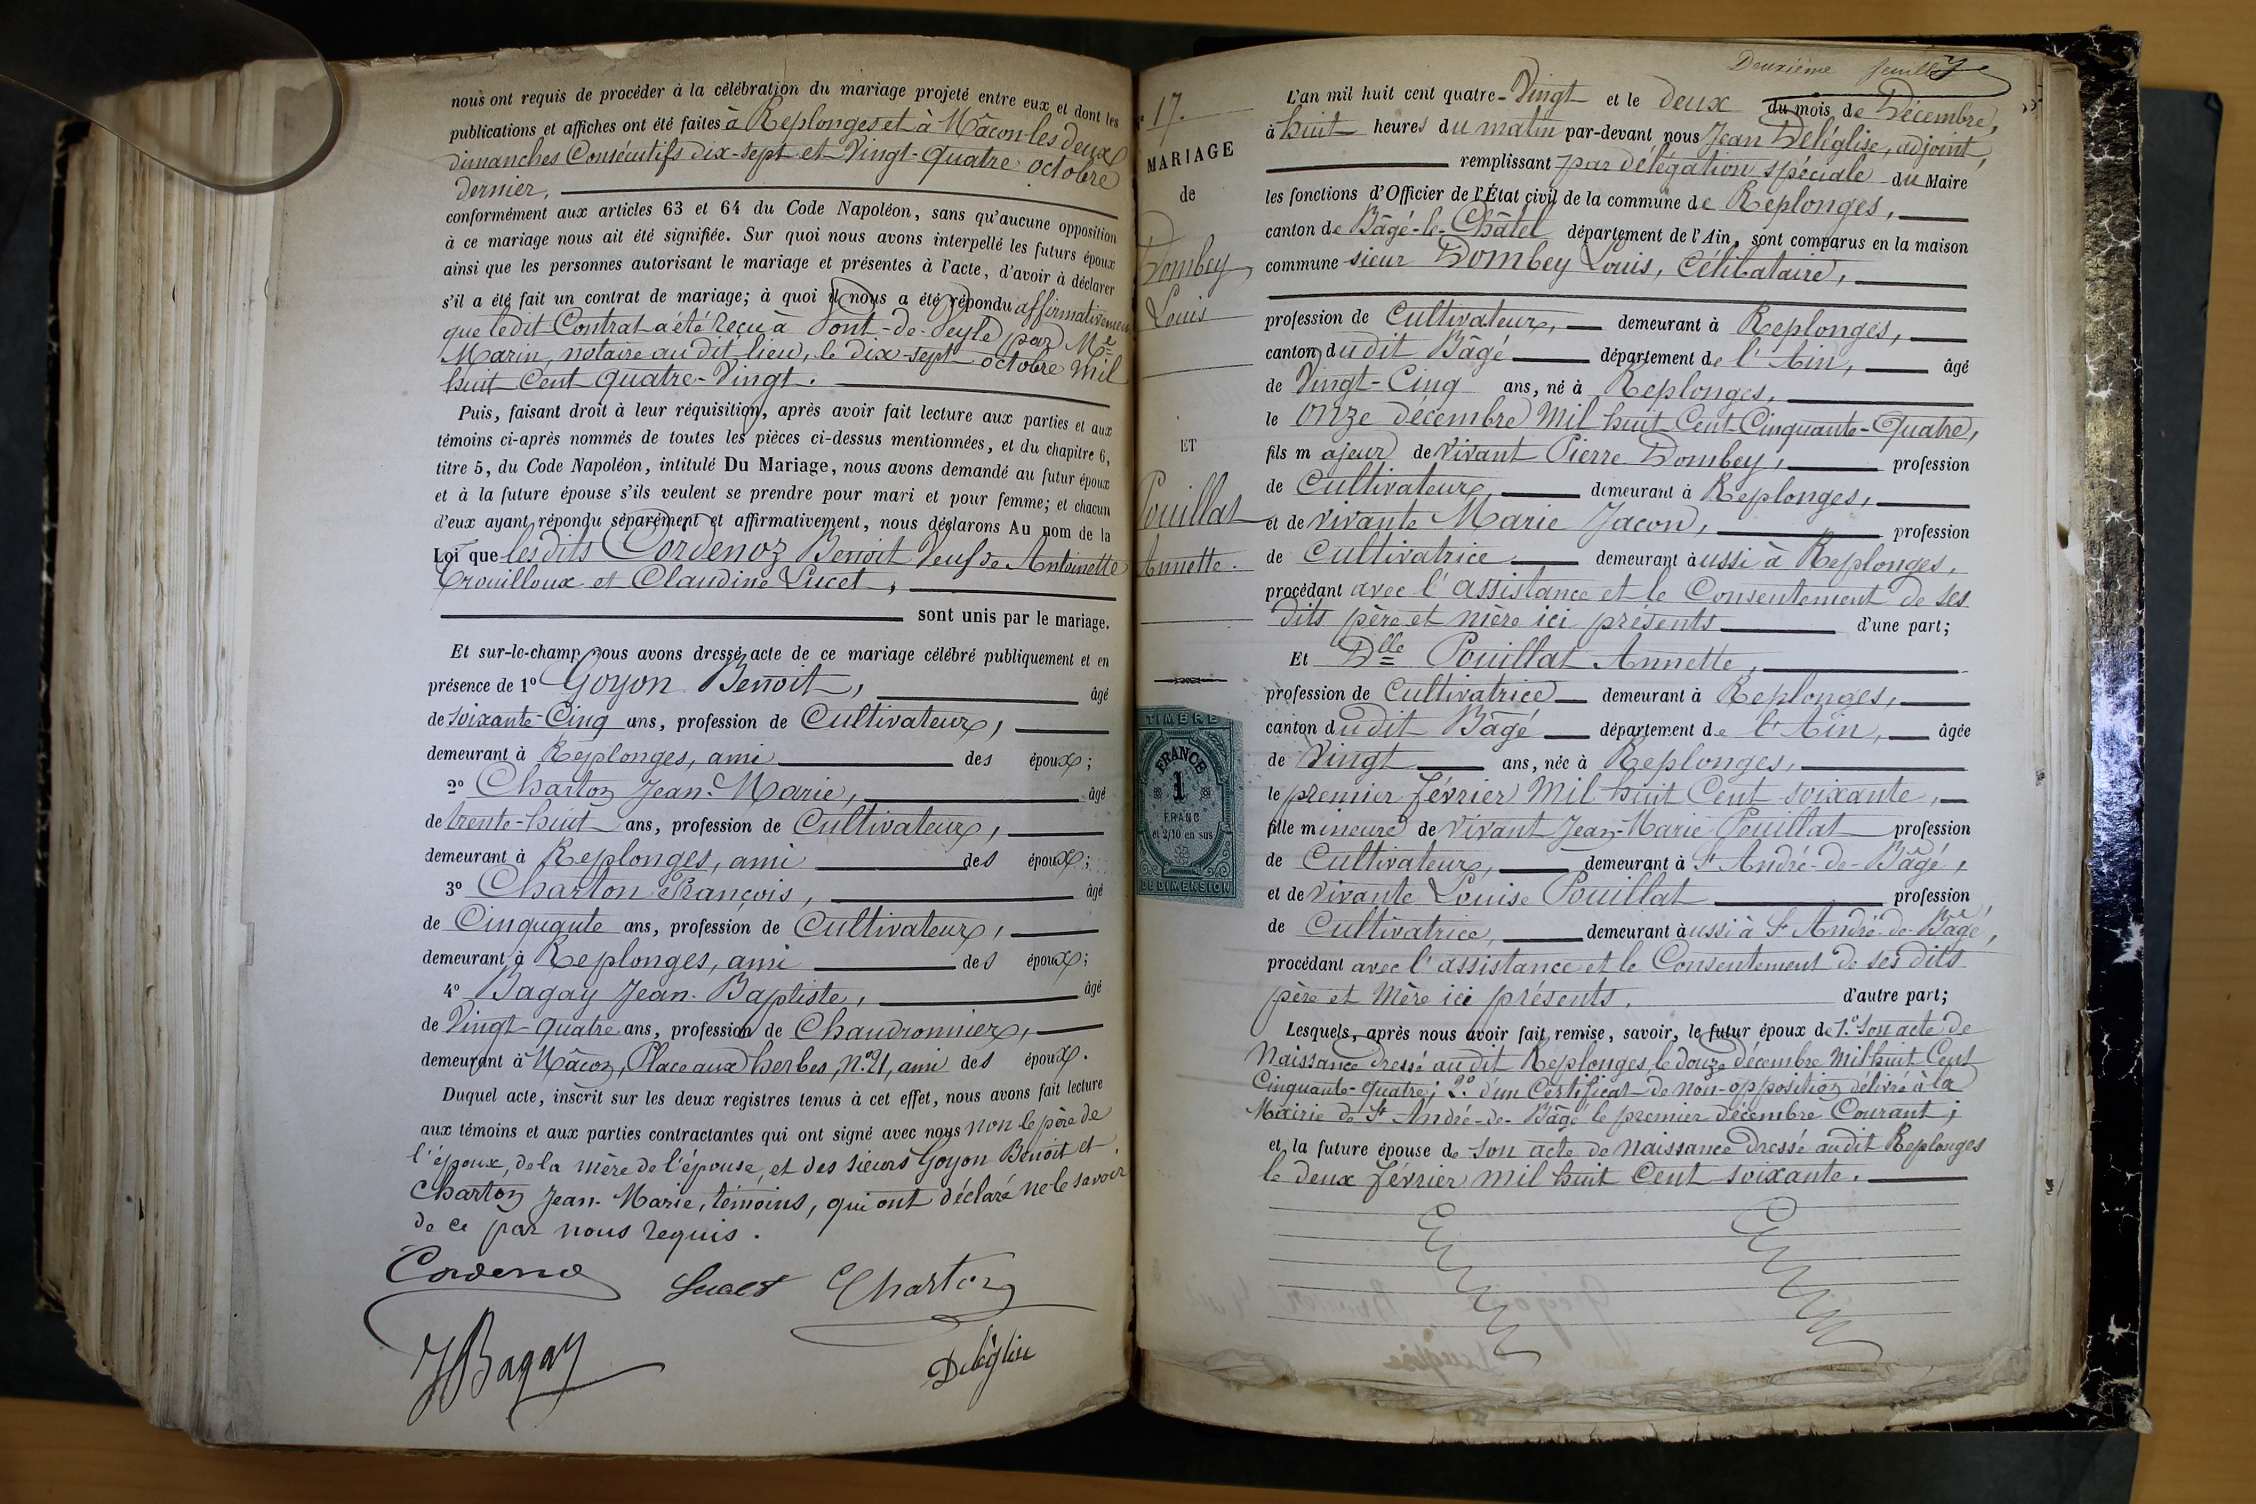 nous ont requis de procéder à la célébration du mariage projeté entre eux et dont les
publications et affiches ont été faites à Replonges et à Mâcon les deux
dimanches Consécutifs dix-sept et Vingt-quatre octobre
dernier,
conformément aux articles 63 et 64 du Code Napoléon, sans qu'aucune opposition
à ce mariage nous ait été signifiée. Sur quoi nous avons interpellé les futurs époux
ainsi que les personnes autorisant le mariage et présentes à l'acte, d'avoir à déclarer
s'il a été fait un contrat de mariage; à quoi il nous a été répondu affirmativement
que ledit Contrat a été reçu à Pont-de-Veyle par Me
Marin, notaire au dit lieu, le dix-sept octobre mil
huit Cent quatre-Vingt.
Puis, faisant droit à leur réquisition, après avoir fait lecture aux parties et aux
témoins ci-après nommés de toutes les pièces ci-dessus mentionnées, et du chapitre 6,
titre 5, du Code Napoléon, intitulé Du Mariage, nous avons demandé au futur époux
et à la future épouse s'ils veulent se prendre pour mari et pour femme; et chacun
d'eux ayant répondu séparément et affirmativement, nous déclarons Au nom de la
Loi que lesdits Cordenoz Benoit Veuf de Antoinette
Trouilloux et Claudine Lucet,
sont unis par le mariage.
Et sur-le-champ nous avons dressé acte de ce mariage célébré publiquement et en
présence de 1º Goyon Benoit, âgé
de soixante-Cinq ans, profession de Cultivateur,
demeurant à Replonges, ami des époux;
2º Charton Jean-Marie, âgé
de trente-huit ans, profession de Cultivateur,
demeurant à Replonges, ami des époux;
3º Charton François, âgé
de Cinquante ans, profession de Cultivateur,
demeurant à Replonges, ami des époux;
4º Bagay Jean-Baptiste, âgé
de Vingt-quatre ans, profession de Chaudronnier,
demeurant à Mâcon, Place aux herbes, Nº 21, ami des époux.
Duquel acte, inscrit sur les deux registres tenus à cet effet, nous avons fait lecture
aux témoins et aux parties contractantes qui ont signé avec nous non le père de
l'époux, de la mère de l'épouse, et des sieurs Goyon Benoit et
Charton Jean-Marie, témoins, qui ont déclaré ne le savoir
de ce par nous requis.
Cordenoz Lucet Charton
JBagay Deléglise
Deuxième feuille
Nº 17.
MARIAGE
de
Dombey
Louis
ET
Pouillat
Annette.
TIMBRE
FRANCE
1
FRANC
et 2/10 en sus
DE DIMENSION
L'an mil huit cent quatre-Vingt et le deux du mois de Décembre,
à huit heures du matin par-devant nous Jean Deléglise, adjoint,
remplissant par délégation spéciale du Maire
les fonctions d'Officier de l'État civil de la commune de Replonges,
canton de Bâgé-le-Châtel département de l'Ain, sont comparus en la maison
commune sieur Dombey Louis, Célibataire,
profession de Cultivateur, demeurant à Replonges,
canton dudit Bâgé département de l'Ain, âgé
de Vingt-Cinq ans, né à Replonges,
le onze décembre mil huit Cent Cinquante-Quatre,
fils majeur de vivant Pierre Dombey, profession
de Cultivateur, demeurant à Replonges,
et de vivante Marie Jacon, profession
de Cultivatrice demeurant aussi à Replonges,
procédant avec l'assistance et le Consentement de ses
dits père et mère ici présents d'une part;
Et Dlle Pouillat Annette,
profession de Cultivatrice demeurant à Replonges,
canton dudit Bâgé département de l'Ain, âgée
de Vingt ans, née à Replonges,
le premier février mil huit Cent soixante,
fille mineure de vivant Jean-Marie Pouillat profession
de Cultivateur, demeurant à St André-de-Bâgé,
et de vivante Louise Pouillat profession
de Cultivatrice, demeurant aussi à St André-de-Bâgé,
procédant avec l'assistance et le Consentement de ses dits
père et mère ici présents. d'autre part;
Lesquels, après nous avoir fait remise, savoir, le futur époux de 1.º son acte de
Naissance dressé au dit Replonges, le douze décembre mil huit Cent
Cinquante-quatre; 2.º d'un Certificat de non-opposition délivré à la
Mairie de St André-de-Bâgé le premier décembre Courant;
et la future épouse de son acte de Naissance dressé au dit Replonges
le deux février mil huit Cent soixante.